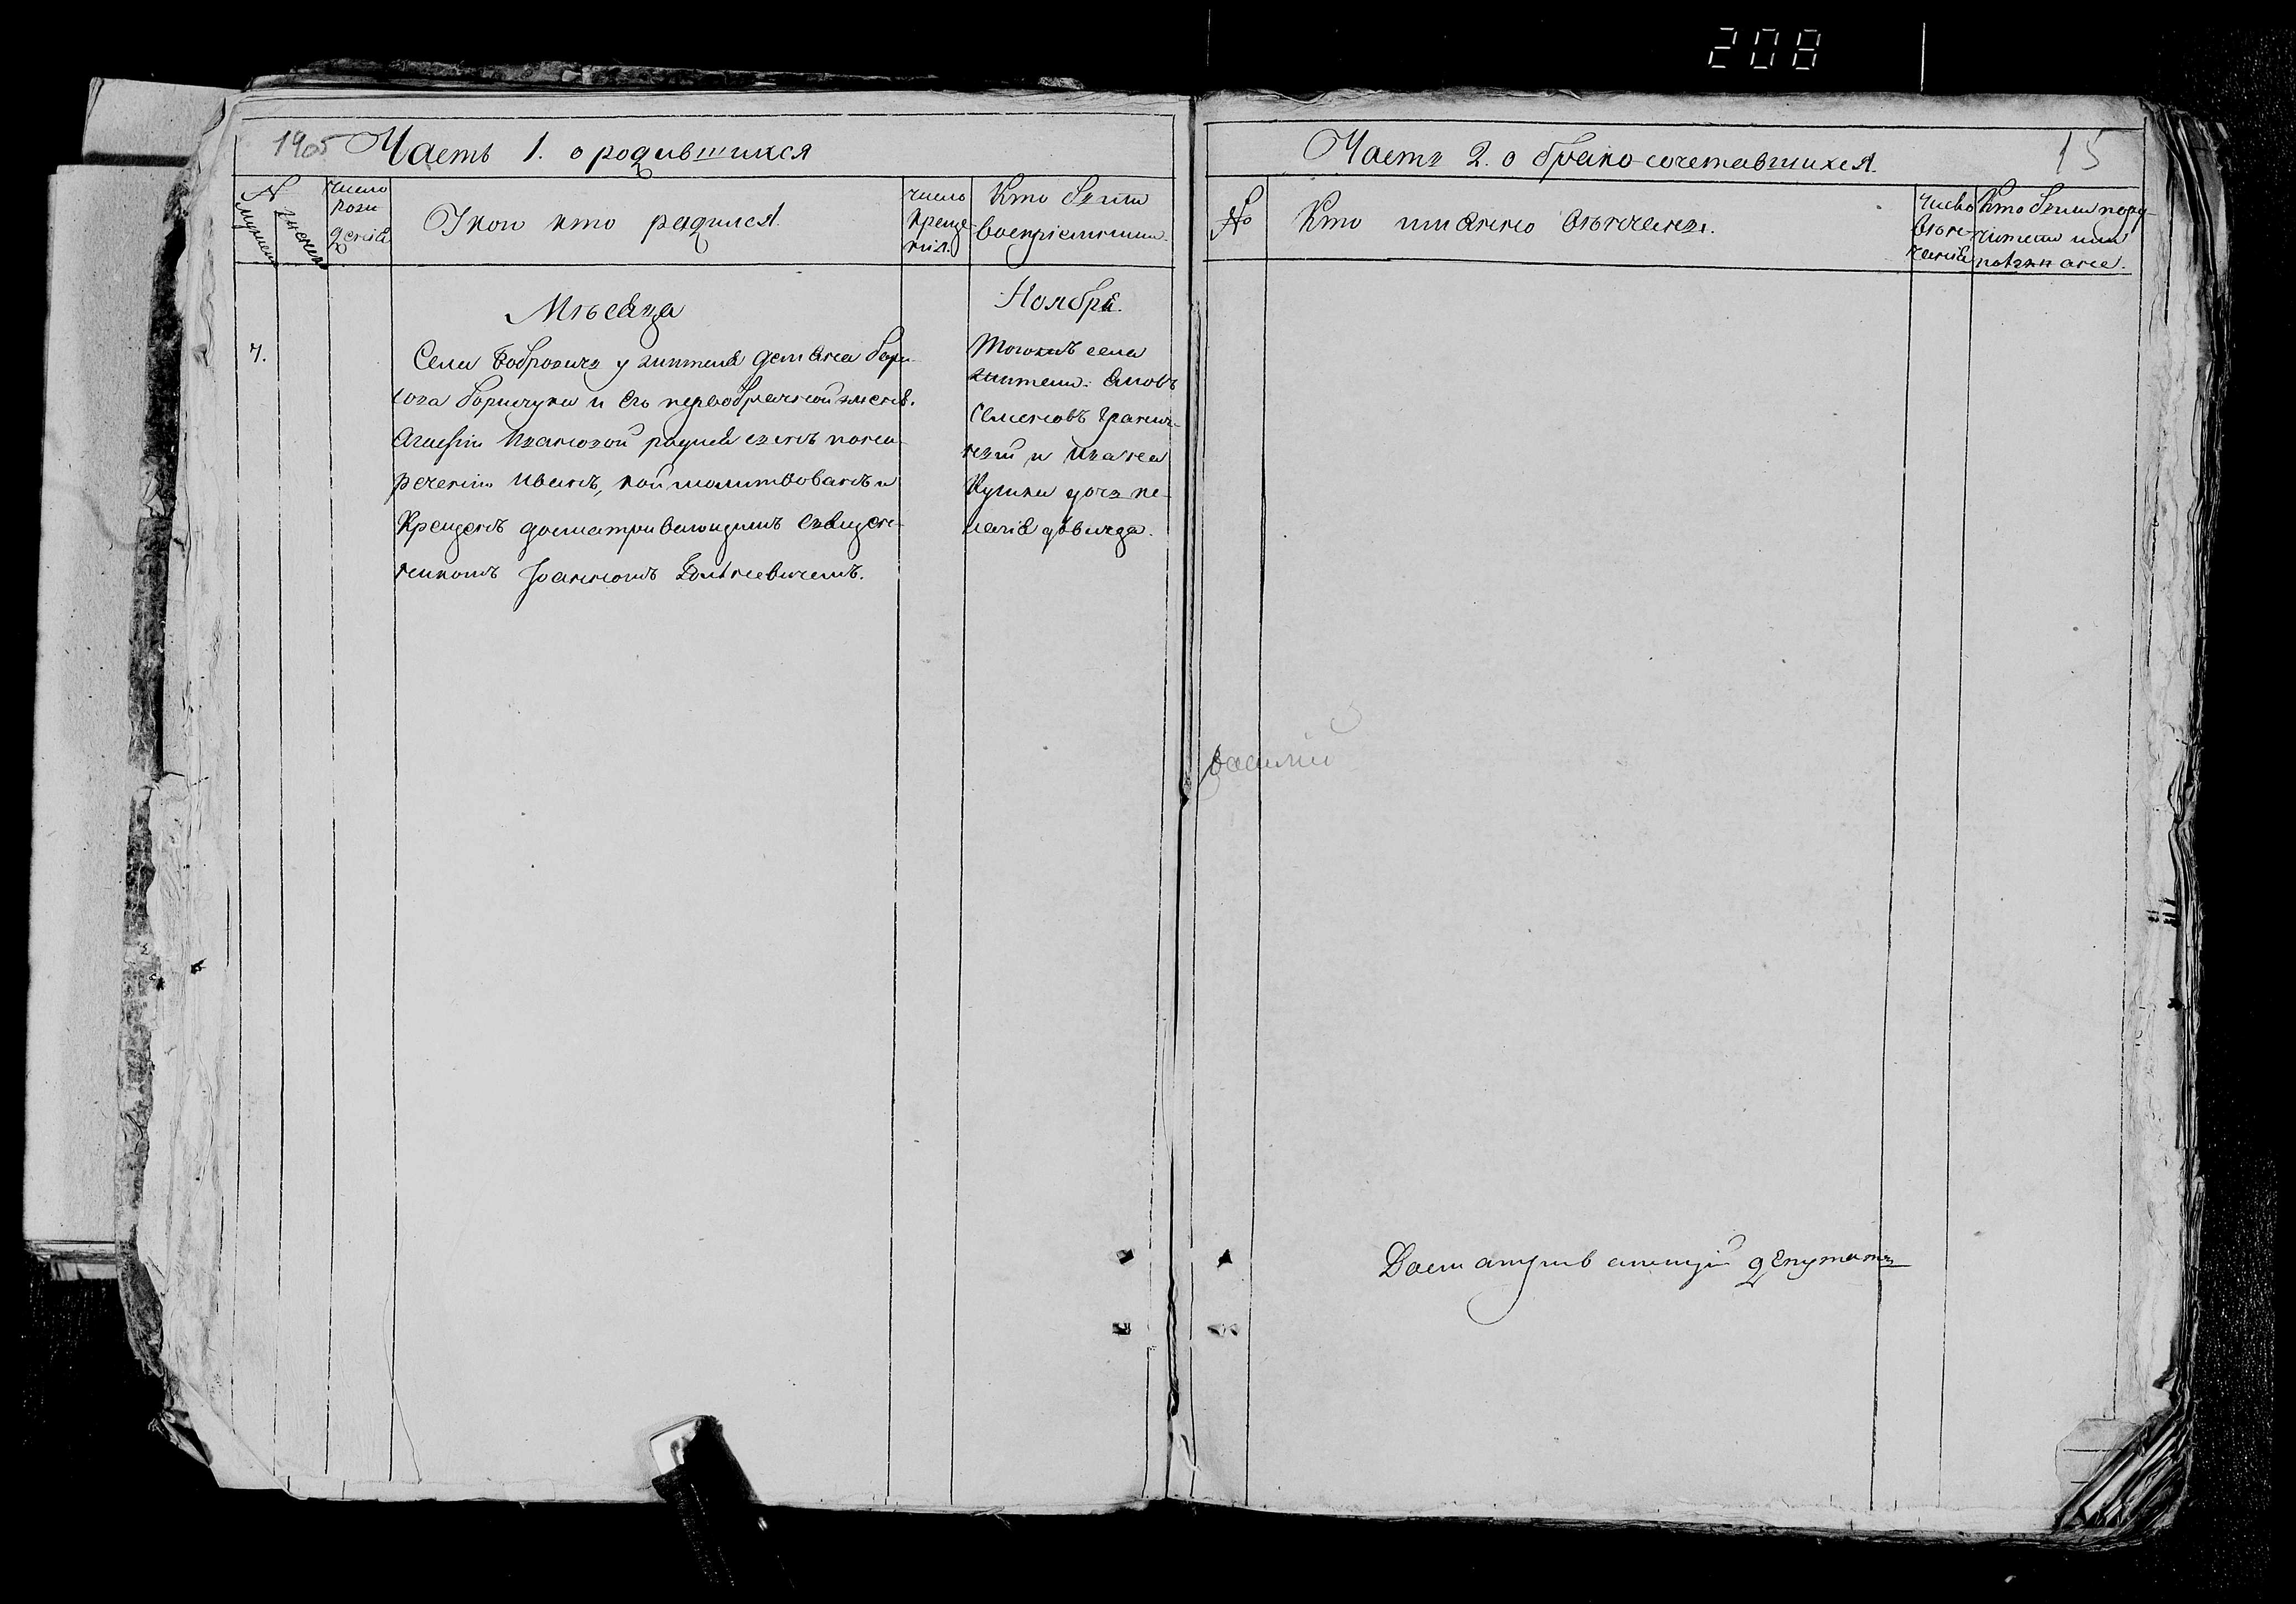 208
1905 Часть 1. о родившихся
№
мужеск
женск
число
рож
денія
У кого кто родился.
число
Креще
нія.
Кто были
воспріемники.
Мѣсяца
Ноября.
7.
Села Бобровичъ у жителя Демяна Бори-
сова Боричука и его первобрачной жены
Агафіи Ивановой родися сынъ по на-
реченію Иванъ, кой молитвованъ и
Крещенъ досматривающимъ священ-
никомъ Іоанномъ
Тогожъ села
жители:
Семеновъ
и Ивана
дочь Пе-
лагія дѣвица.
Часть 2. о брако-сочетавшихся.
15
№
Кто имянно вѣнчаны.
Число
вѣн-
чанія
Кто были пору-
чители или
поѣзжане.
Василій
Досматривающій депутатъ